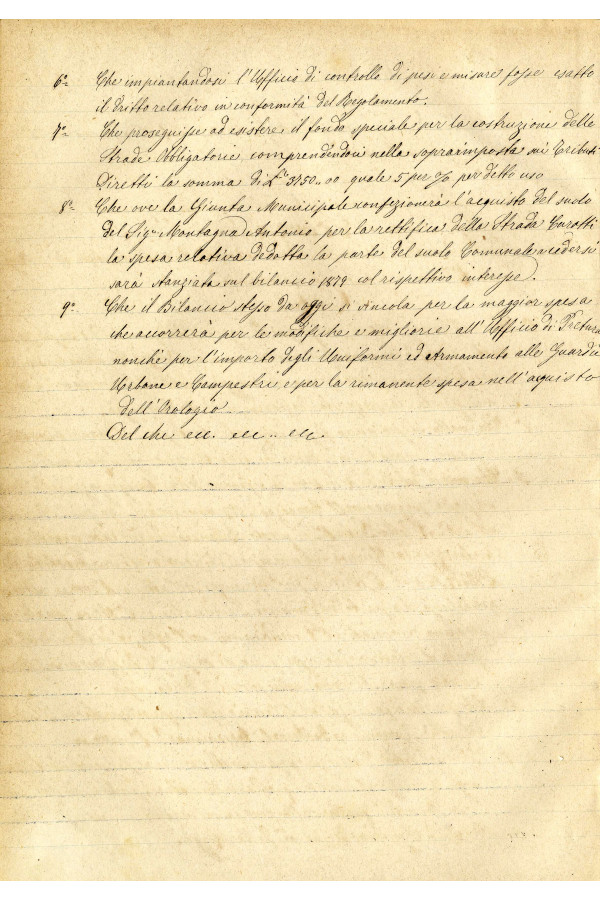 6º= Che impiantandosi l'Ufficio di controllo di pesi e misure fosse esatto
il dritto relativo in conformità del Regolamento.
7º= Che proseguisse ad esistere il fondo speciale per la costruzione delle
Strade Obbligatorie comprendendosi nella sopraimposta sui Tributi
Diretti la somma di L.re 3150,,00 quale 5 per % per detto uso
8º= Che ove la Giunta Municipale confezionerà l'acquisto del suolo
del Sigr Montagna Antonio per la rettifica della Strada Carotti
la spesa relativa dedotta la parte del suolo Comunale a cedersi
sarà stanziata sul bilancio 1879 col rispettivo interesse.
9º Che il Bilancio stesso da oggi si vincola per la maggior spesa
che accorrerà per le modifiche e migliorie all'Ufficio di Pretura
nonchè per l'importo degli Uniformi ed Armamento alle Guardie
Urbane e Campestri e per la rimanente spesa nell'acquisto
dell'Orologio
Del che ecc. ecc.. ecc.